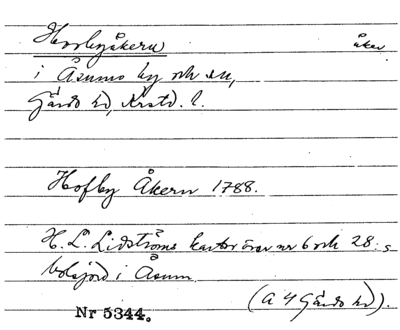 Hovbyåkern åker
i Åsums by och sn,
Gärds hd, Krstd. l.
Hofby Åkern 1788.
H. L. Lidströms kartor över nr 6 och 28:s
bolsjord i Åsum.
(A 4 Gärds hd).
Nr 5344.